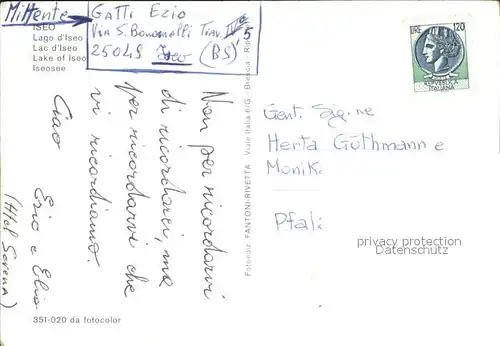 Mittente
Gatti Ezio
Via S. Bonomelli Trav. IVª 5
25049 Iseo (BS)
ISEO
Lago d'Iseo
Lac d'Iseo
Lake of Iseo
Iseosee
Non per ricordarvi
di ricordarci, ma
per ricordarvi che
vi ricordiamo.
Ciao
Ezio e Elio
(Hotel Serena)
351-020 da fotocolor
Fotoediz. FANTONI-RIVETTA Viale Italia 6/G - Brescia
LIRE 120
REPVBBLICA
ITALIANA
Gent. Sig.ne
Herta Güthmann e
Monika
Pfalz
privacy protection
Datenschutz